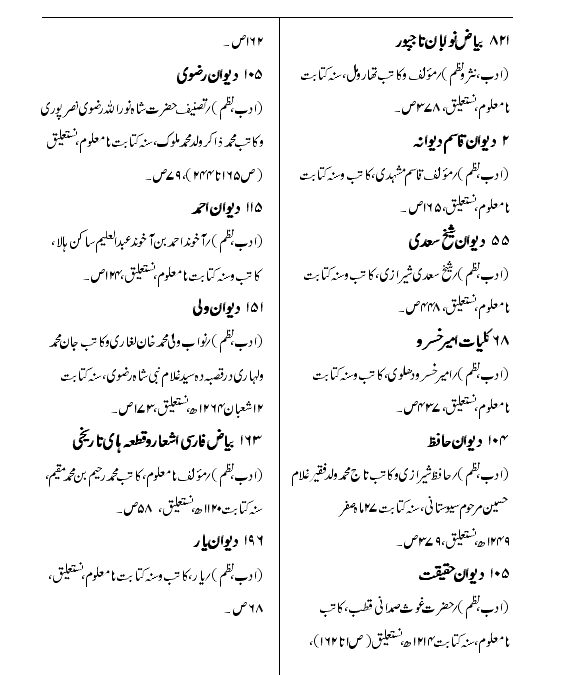 ۸۲۱ بیاض نوابان تاجپور
(ادب،نثر ونظم)/مؤلف وکاتب تھارومل،سنہ کتابت
نامعلوم،نستعلیق،۳۷۸ص۔
۲ دیوان قاسم دیوانہ
(ادب،نظم)/مؤلف قاسم مشہدی،کاتب وسنہ کتابت
نامعلوم،نستعلیق،۱۶۵ص۔
۵۵ دیوان شیخ سعدی
(ادب،نظم)/شیخ سعدی شیرازی،کاتب وسنہ کتابت
نامعلوم،نستعلیق،۴۴۸ص۔
۶۸ کلیات امیر خسرو
(ادب،نظم)/امیر خسرو دھلوی،کاتب وسنہ کتابت
نامعلوم،نستعلیق،۴۳۷ص۔
۱۰۴ دیوان حافظ
(ادب،نظم)/حافظ شیرازی وکاتب تاج محمد ولد فقیر غلام
حسین مرحوم سیوستانی،سنہ کتابت ۲۷ماہ صفر
۱۲۴۹ھ،نستعلیق،۳۷۹ص۔
۱۰۵ دیوان حقیقت
(ادب،نظم)/حضرت غوث صدانی قطب،کاتب
نامعلوم،سنہ کتابت۱۲۱۴ھ،نستعلیق(ص۱تا۱۶۲)،
۱۶۲ص۔
۱۰۵ دیوان رضوی
(ادب،نظم)/تصنیف حضرت شاہ نوراللہ رضوی نصرپوری
وکاتب محمد ذاکر ولد محمد ملوک،سنہ کتابت نامعلوم،نستعلیق
(ص۱۶۵تا۲۴۴)،۷۹ص۔
۱۱۵ دیوان احمد
(ادب،نظم)/آخوند احمد بن آخوند عبدالعلیم ساکن ہالا،
کاتب وسنہ کتابت نامعلوم،نستعلیق،۱۲۴ص۔
۱۵۱ دیوان ولی
(ادب،نظم)/نواب ولی محمد خان لغاری وکاتب جان محمد
ولہاری درقصبہ دہ سید غلام نبی شاہ رضوی،سنہ کتابت
۱۲شعبان۱۲۶۴ھ،نستعلیق،۱۷۳ص۔
۱۶۳ بیاض فارسی اشعار وقطعہ ہای تاریخی
(ادب،نظم)/مؤلف نامعلوم،کاتب محمد رحیم بن محمد مقیم،
سنہ کتابت۱۱۲۰ھ،نستعلیق، ۵۸ص۔
۱۹۶ دیوان یار
(ادب،نظم)/یار،کاتب وسنہ کتابت نامعلوم،نستعلیق،
۶۸ص۔